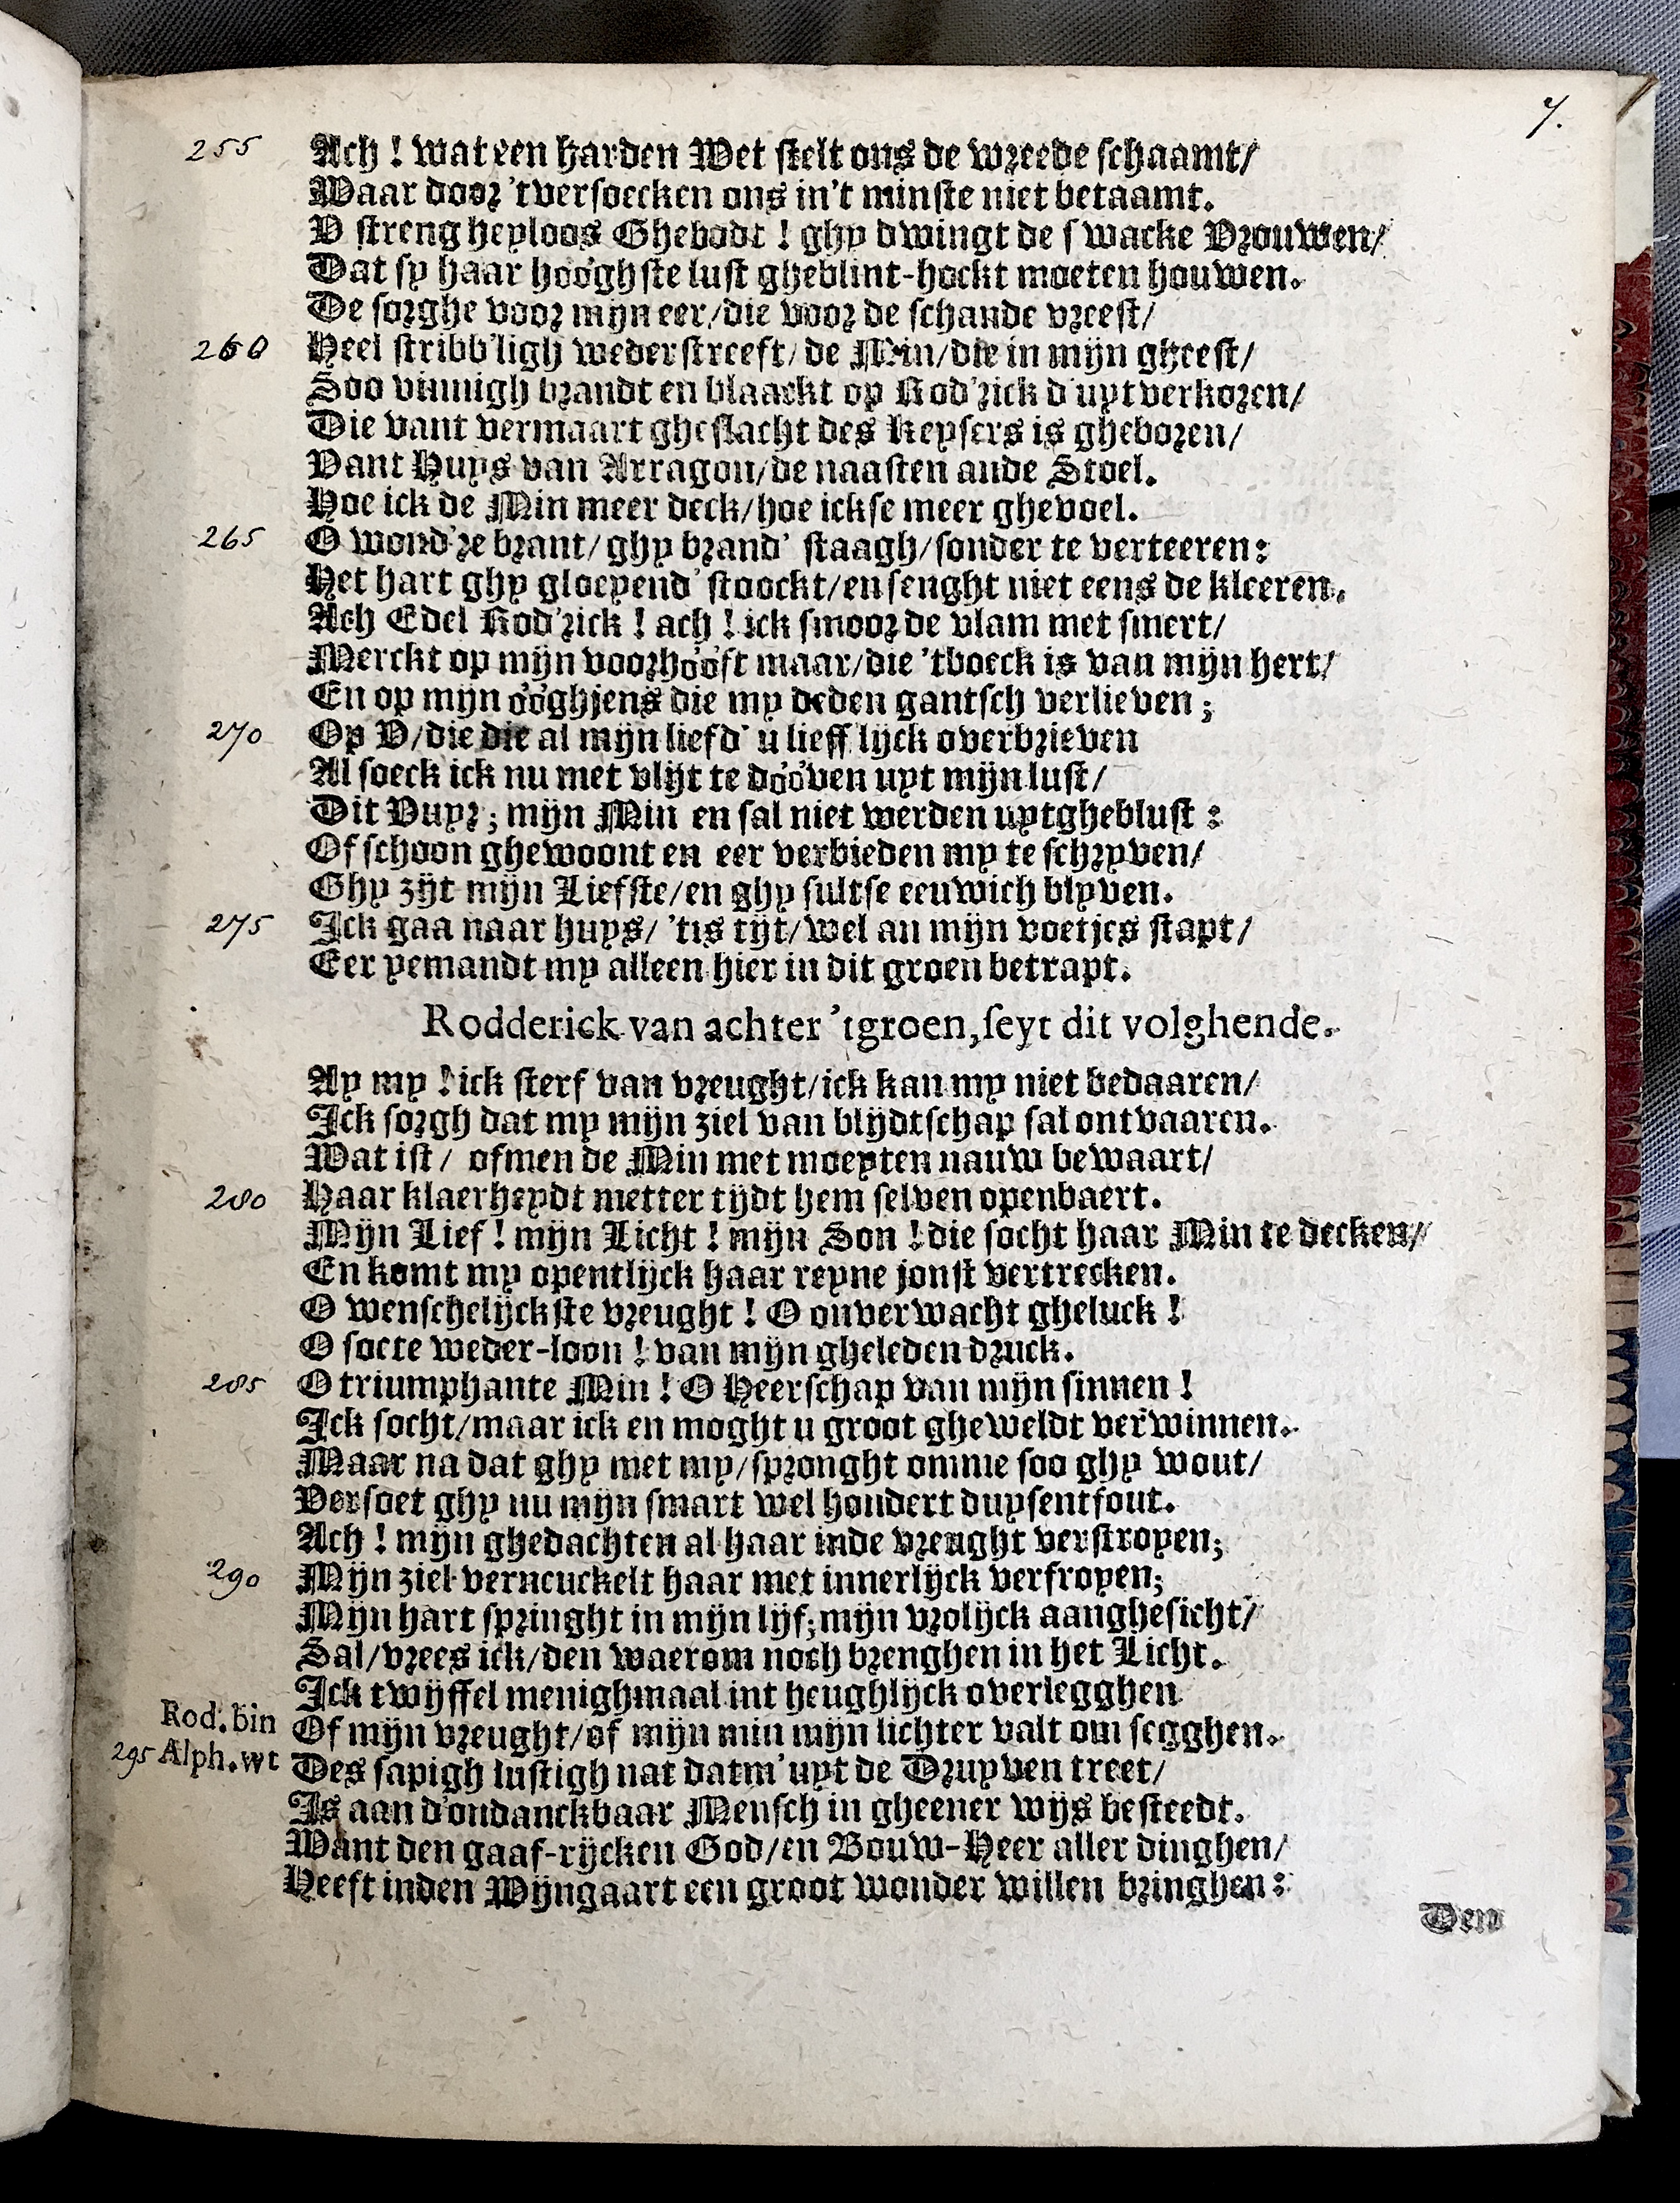 7.
255 Ach! wat een harden Wet stelt ons de wreede schaamt/
Waar door 't versoecken ons in't minste niet betaamt.
V streng heyloos Ghebodt! ghy dwingt de swacke Vrouwen/
Dat sy haar hooghste lust gheblint-hockt moeten houwen.
De sorghe voor mijn eer/die voor de schande vreest/
260 Heel stribb'ligh wederstreeft/de Min/die in mijn gheest/
Soo vinnigh brandt en blaarkt op Rod'rick d'uytverkoren/
Die vant vermaart gheslacht des Keysers is gheboren/
Vant Huys van Arragon/de naasten ande Stoel.
Hoe ick de Min meer deck/hoe ickse meer ghevoel.
265 O wond're brant/ghy brand' staagh/sonder te verteeren:
Het hart ghy gloeyend' stoockt/en senght niet eens de kleeren.
Ach Edel Rod'rick! ach! ick smoor de vlam met smert/
Merckt op mijn voorhóóft maar/die 'tboeck is van mijn hert/
En op mijn óóghjens die my deden gantsch verlieven;
270 Op V/die die al mijn liefd' u lieff lijck overbrieven
Al soeck ick nu met vlijt te dóóven uyt mijn lust/
Dit Vuyr; mijn Min en sal niet werden uytgheblust:
Of schoon ghewoont en eer verbieden my te schryven/
Ghy zijt mijn Liefste/en ghy sultse eeuwich blyven.
275 Ick gaa naar huys/ 'tis tijt/wel an mijn voetjes stapt/
Eer yemandt my alleen hier in dit groen betrapt.
Rodderick van achter 'tgroen, seyt dit volghende.
Ay my! ick sterf van vreught/ick kan my niet bedaaren/
Ick sorgh dat my mijn ziel van blijdtschap sal ontvaaren.
Wat ist/ ofmen de Min met moeyten nauw bewaart/
280 Haar klaerheydt metter tijdt hem selven openbaert.
Mijn Lief! mijn Licht! mijn Son! die socht haar Min te decken/
En komt my opentlijck haar reyne jonst vertrecken.
O wenschelijckste vreught! O onverwacht gheluck!
O soete weder-loon! van mijn gheleden druck.
285 O triumphante Min! O Heerschap van mijn sinnen!
Ick socht/maar ick en moght u groot gheweldt verwinnen.
Maar na dat ghy met my/spronght omme soo ghy wout/
Versoet ghy nu mijn smart wel hondert duysentfout.
Ach! mijn ghedachten al haar inde vreught verstroyen;
290 Mijn ziel verneuckelt haar met innerlijck verfroyen;
Mijn hart springht in mijn lijf; mijn vrolijck aanghesicht/
Sal/vrees ick/den waerom noch brenghen in het Licht.
Ick twijffel menighmaal int heughlijck overlegghen
Rod. bin Of mijn vreught/of mijn min mijn lichter valt om segghen.
295 Alph. wt Des sapigh lustigh nat datm' uyt de Druyven treet/
Is aan d'ondanckbaar Mensch in gheener wijs besteedt.
Want den gaaf-rijcken God/en Bouw-Heer aller dinghen/
Heeft inden Wijngaart een groot wonder willen bringhen:
Den